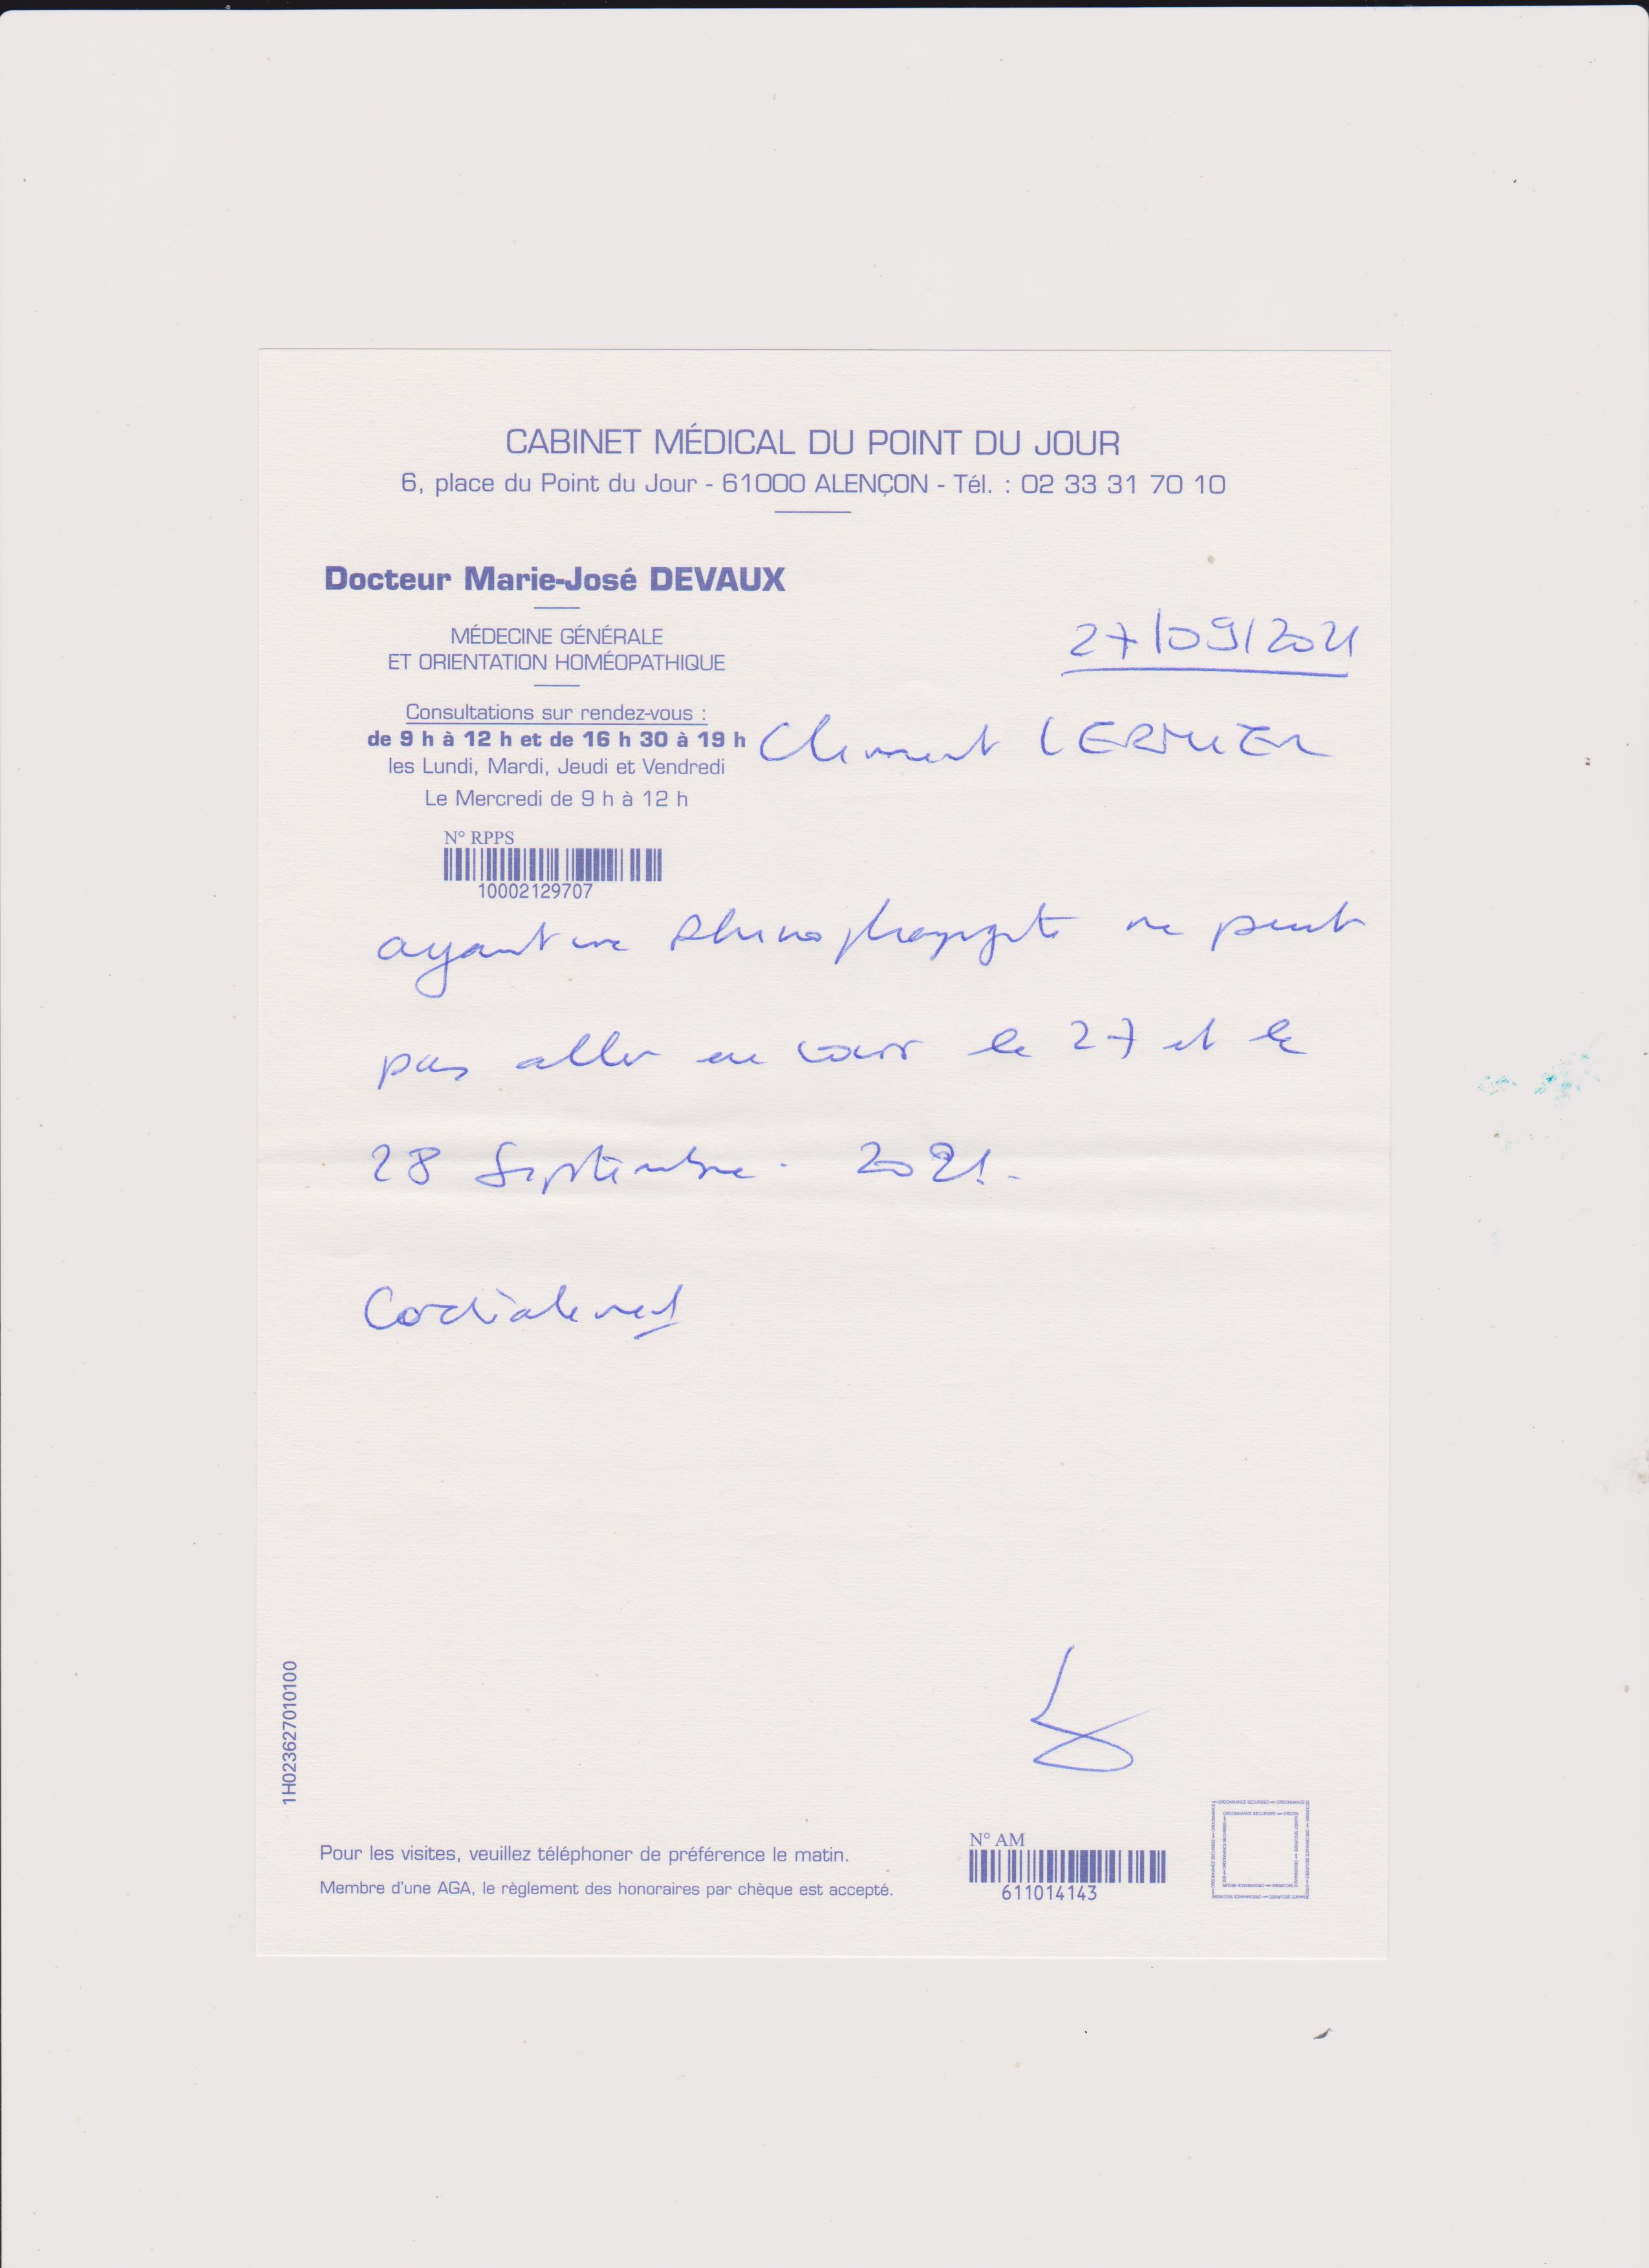 CABINET MÉDICAL DU POINT DU JOUR
6, place du Point du Jour - 61000 ALENÇON - Tél. : 02 33 31 70 10
Docteur Marie-José DEVAUX
MÉDECINE GÉNÉRALE
ET ORIENTATION HOMÉOPATHIQUE
27/09/2021
Consultations sur rendez-vous :
de 9 h à 12 h et de 16 h 30 à 19 h
Clement
les Lundi, Mardi, Jeudi et Vendredi
Le Mercredi de 9 h à 12 h
N° RPPS
10002129707
ayant une Rhinopharyngite ne peut
pas aller en cours le 27 et le
28 Septembre. 2021.
Cordialement
1H023627010100
Pour les visites, veuillez téléphoner de préférence le matin.
Membre d'une AGA, le règlement des honoraires par chèque est accepté.
N° AM
611014143